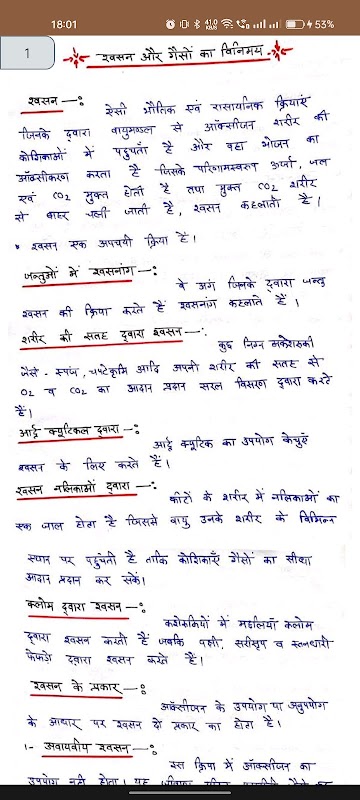 18:01
41.0
KB/s
53%
1
श्वसन और गैसों का विनिमय
श्वसन —:
ऐसी भौतिक एवं रासायनिक क्रियाएं
जिनके द्वारा वायुमण्डल से ऑक्सीजन शरीर की
कोशिकाओं में पहुचती है और वहा भोजन का
ऑक्सीकरण करता है जिसके परिणामस्वरूप ऊर्जा, जल
एवं CO2 मुक्त होती है तथा मुक्त CO2 शरीर
से बाहर चली जाती है, श्वसन कहलाती है।
• श्वसन एक अपचयी क्रिया है।
जन्तुओं में श्वसनांग —:
वे अंग जिनके द्वारा जन्तु
श्वसन की क्रिया करते हैं श्वसनांग कहलाते हैं।
शरीर की सतह द्वारा श्वसन —:
कुछ निम्न
जैसे - स्पंज, चपटेकृमि आदि अपनी शरीर की सतह से
O2 व CO2 का आदान प्रदान सरल विसरण द्वारा करते
हैं।
आर्द्र क्यूटिकल द्वारा —:
आर्द्र क्यूटिक का उपयोग केचुएँ
श्वसन के लिए करते हैं।
श्वसन नलिकाओं द्वारा —:
कीटों के शरीर में नलिकाओं का
एक जाल होता है जिससे वायु उनके शरीर के विभिन्न
स्थान पर पहुंचती है ताकि कोशिकाएँ गैसों का सीधा
आदान प्रदान कर सकें।
क्लोम द्वारा श्वसन —:
कशेरुकियों में मछलियाँ क्लोम
द्वारा श्वसन करती हैं जबकि पक्षी, सरीसृप व स्तनधारी
फेफड़ो द्वारा श्वसन करते हैं।
श्वसन के प्रकार —:
ऑक्सीजन के उपयोग या अनुपयोग
के आधार पर श्वसन दो प्रकार का होता है।
1- अवायवीय श्वसन —:
इस क्रिया में ऑक्सीजन का
उपयोग नही होता। यह